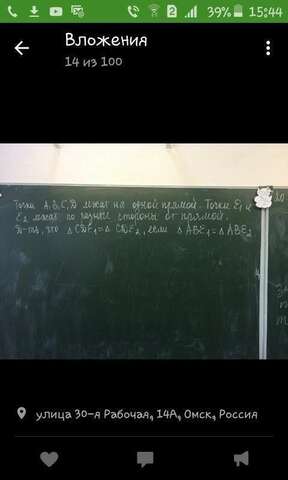 39% 15:44
Вложения
14 из 100
Точки A, B, C, D лежат на одной прямой. Точки E₁ и
E₂ лежат по разные стороны от прямой.
Д-ть, что △ CDE₁ = △ CDE₂, если △ ABE₁ = △ ABE₂
улица 30-я Рабочая, 14А, Омск, Россия